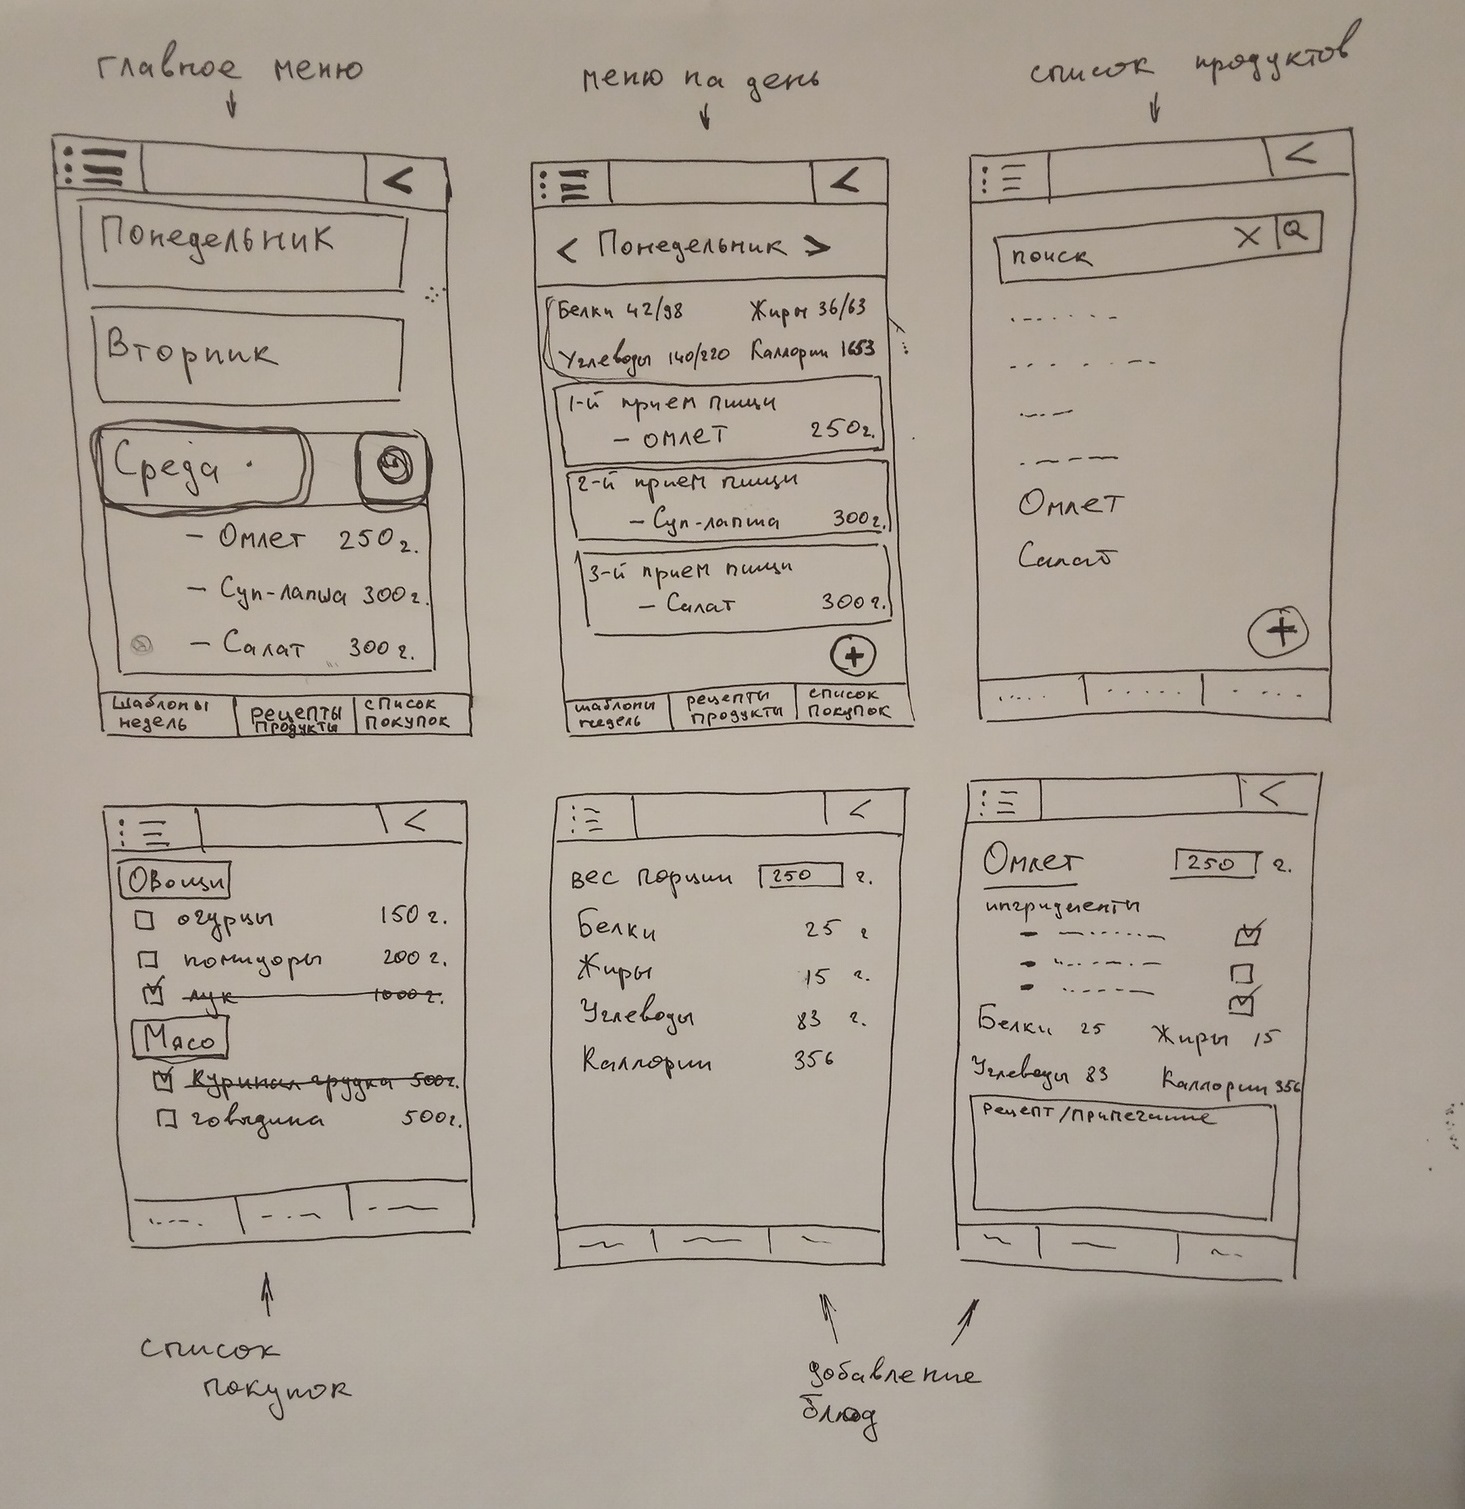 главное меню
Понедельник
Вторник
Среда
- Омлет 250 г.
- Суп-лапша 300 г.
- Салат 300 г.
шаблоны недель
рецепты продукты
список покупок
меню на день
< Понедельник >
Белки 42/98 Жиры 36/63
Углеводы 140/220 Каллории 1653
1-й прием пищи
- омлет 250 г.
2-й прием пищи
- Суп-лапша 300 г.
3-й прием пищи
- Салат 300 г.
+
шаблоны недель
рецепты продукты
список покупок
список продуктов
поиск X
Омлет
Салат
+
Овощи
огурцы 150 г.
помидоры 200 г.
лук 1000 г.
Мясо
куриная грудка 500 г.
говядина 500 г.
список
покупок
вес порции 250 г.
Белки 25 г
Жиры 15 г.
Углеводы 83 г.
Каллории 356
Омлет 250 г.
ингридиенты
Белки 25 Жиры 15
Углеводы 83 Каллории 356
рецепт/примечание
добавление
блюд